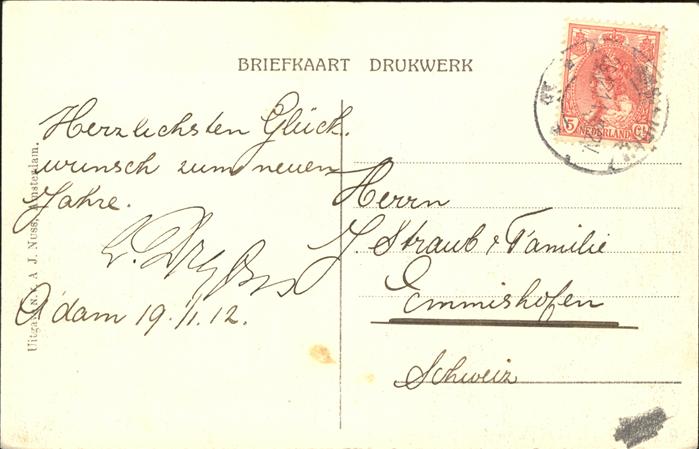 BRIEFKAART DRUKWERK
Herzlichsten Glück.
wunsch zum neuen
Jahre.
A'dam 19.1.12.
Herrn
J. Straub & Familie
Emmishofen
Schweiz
5 Ct
NEDERLAND
Uitgave N. J. Nuss, Amsterdam.